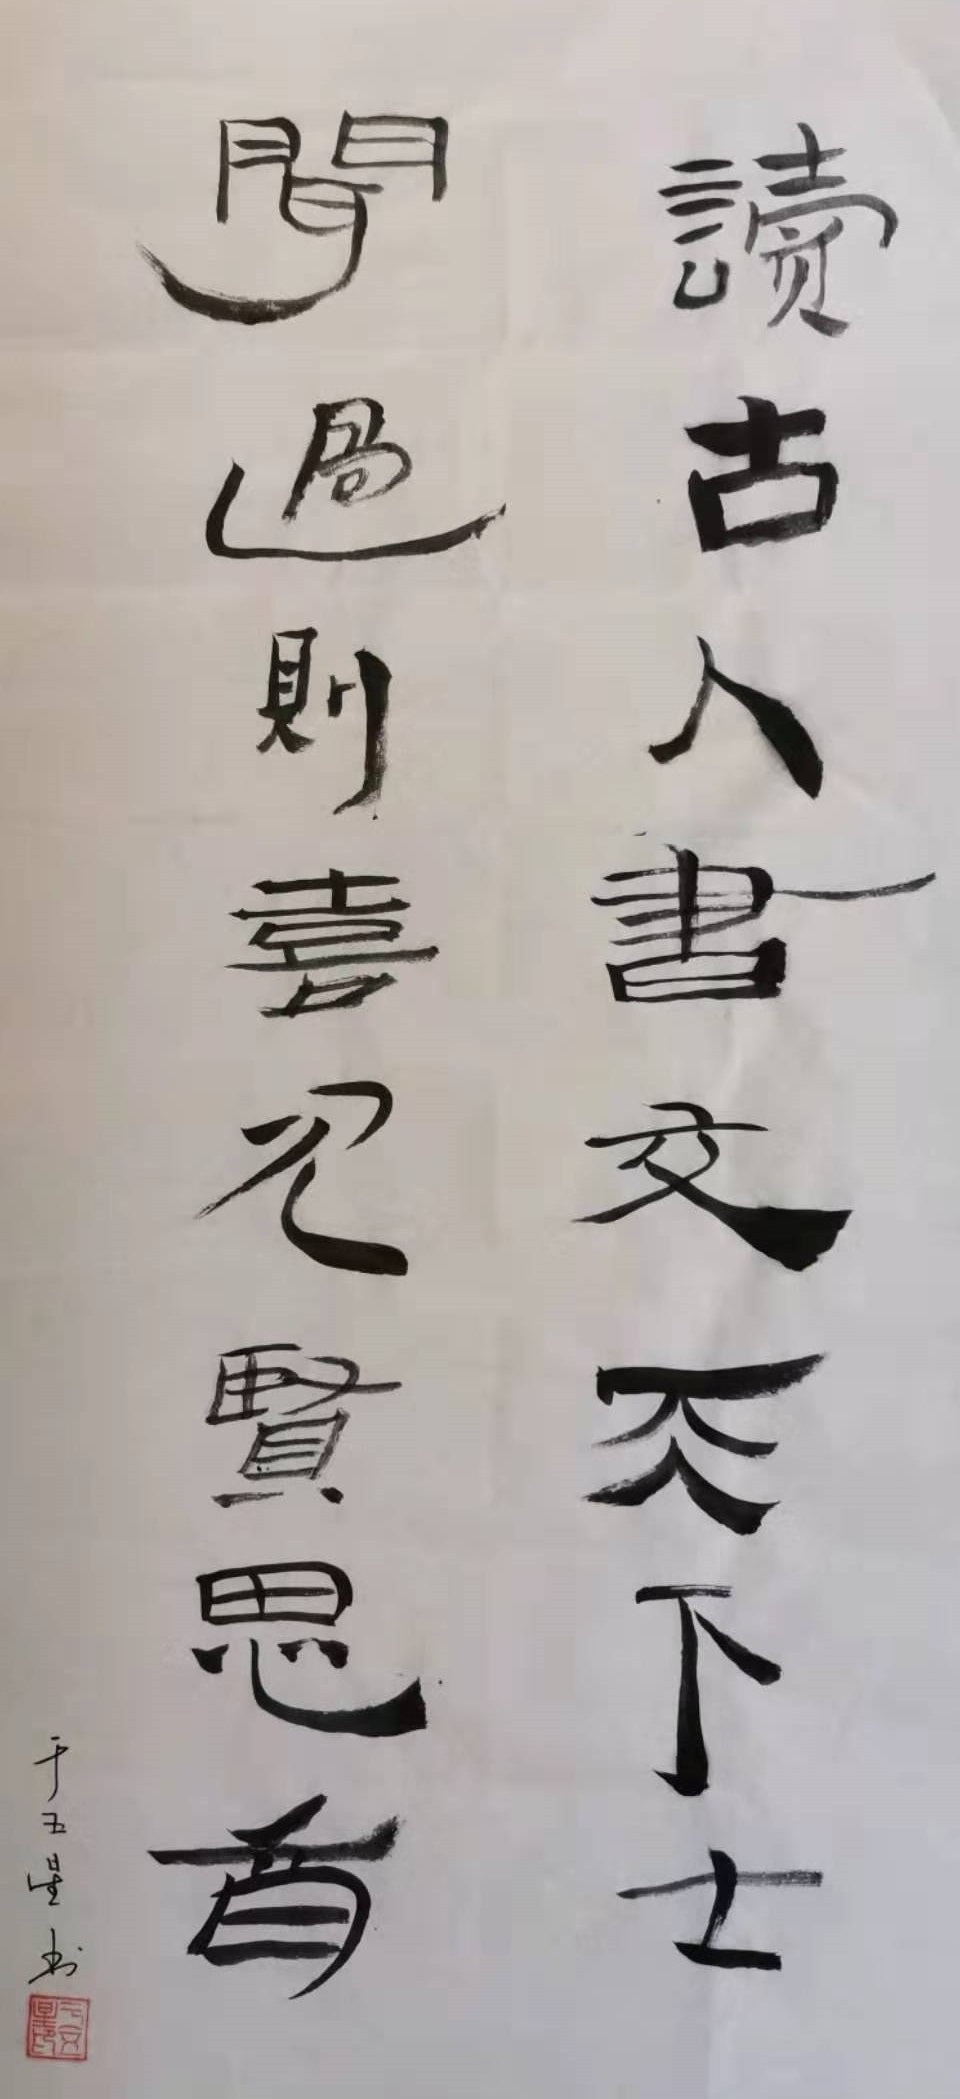 讀古人書交天下士
聞過則喜見賢思齊
于五星书